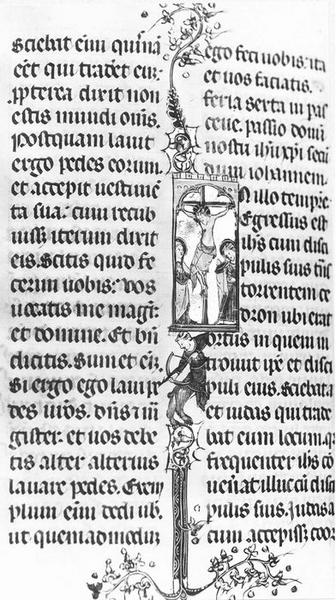 Sciebat eīm quisnā
eēt qui tradet eū:
ꝓpterea dixit non
estis mundi om̄s.
Postquam lauit
ergo pedes eorum
et accepit uestimē
ta sua. cum recub
uiss; iterum dixit
eis. Scitis quid fe
cerim uobis: Vos
uocatis me magr̄
et domine. Et bn̄
dicitis. Sum et eīm.
Si ergo ego laui pe
des ur̄os. dn̄s
gister. et uos debe
tis alter alterius
lauare pedes. Exem
plum eīm dedi ub̄.
ut quemadmodum
ego feci uobis: ita
et uos faciatis.
feria sexta in
ceue. passio domī
nostri ih̄u xp̄i secū
dum iohannem.
In illo temp̄re
Egressus est
ih̄s cum disci
pulis suis tn̄s
torrentem ce
dron ubi erat
ortus in quem in
troiuit ip̄e et disci
puli eius. Sciebat
et iudas qui trade
bat eum locum. q
frequenter ih̄s cō
uen̄at illuc cū disci
pulis suis. Iudas
cum accepiss; coor